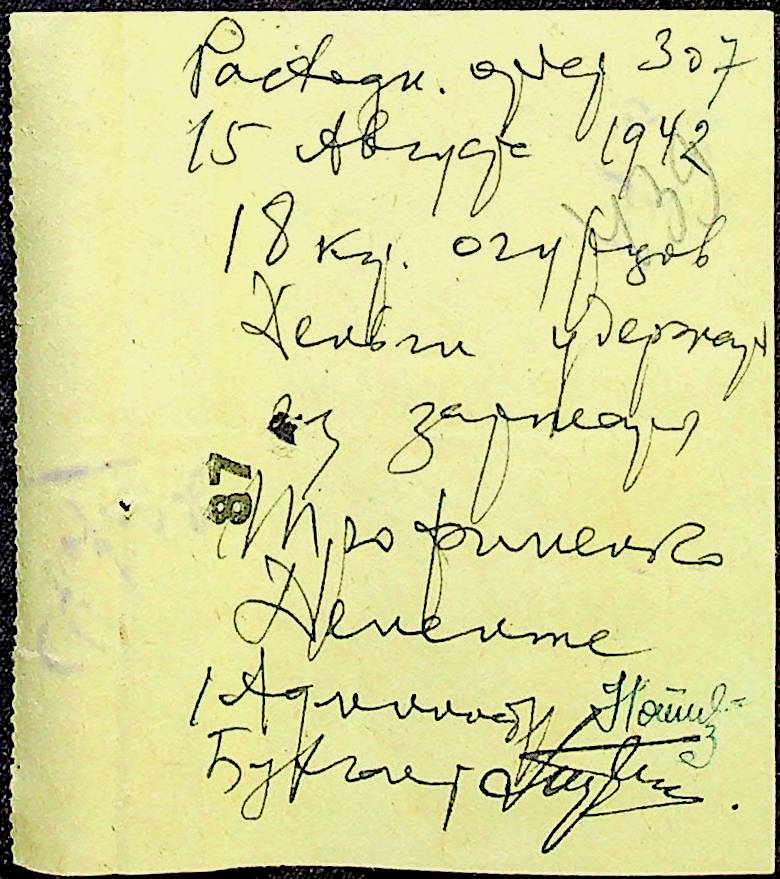 Расходн. ордер 307
15 Августа 1942
439
18 кгр. огурцов
Деньги удержать
из зарплаты
87
Трофименко
Клементе
Администр
Бухгалтер